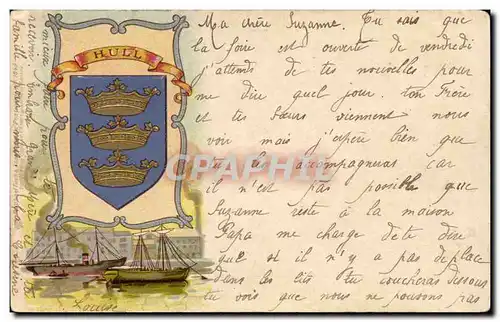 HULL
Ma chère Suzanne. Tu sais que
la foire est ouverte de vendredi
j'attends de tes nouvelles pour
me dire quel jour. ton Frère
et tes sœurs viennent nous
voir mais j'espère bien que
tu les accompagneras car
il n'est pas possible que
Suzanne reste à la maison
Papa me charge de te dire
que s'il n'y a pas de place
dans les lits tu coucheras dessous
tu vois que nous ne pouvons pas
Louise